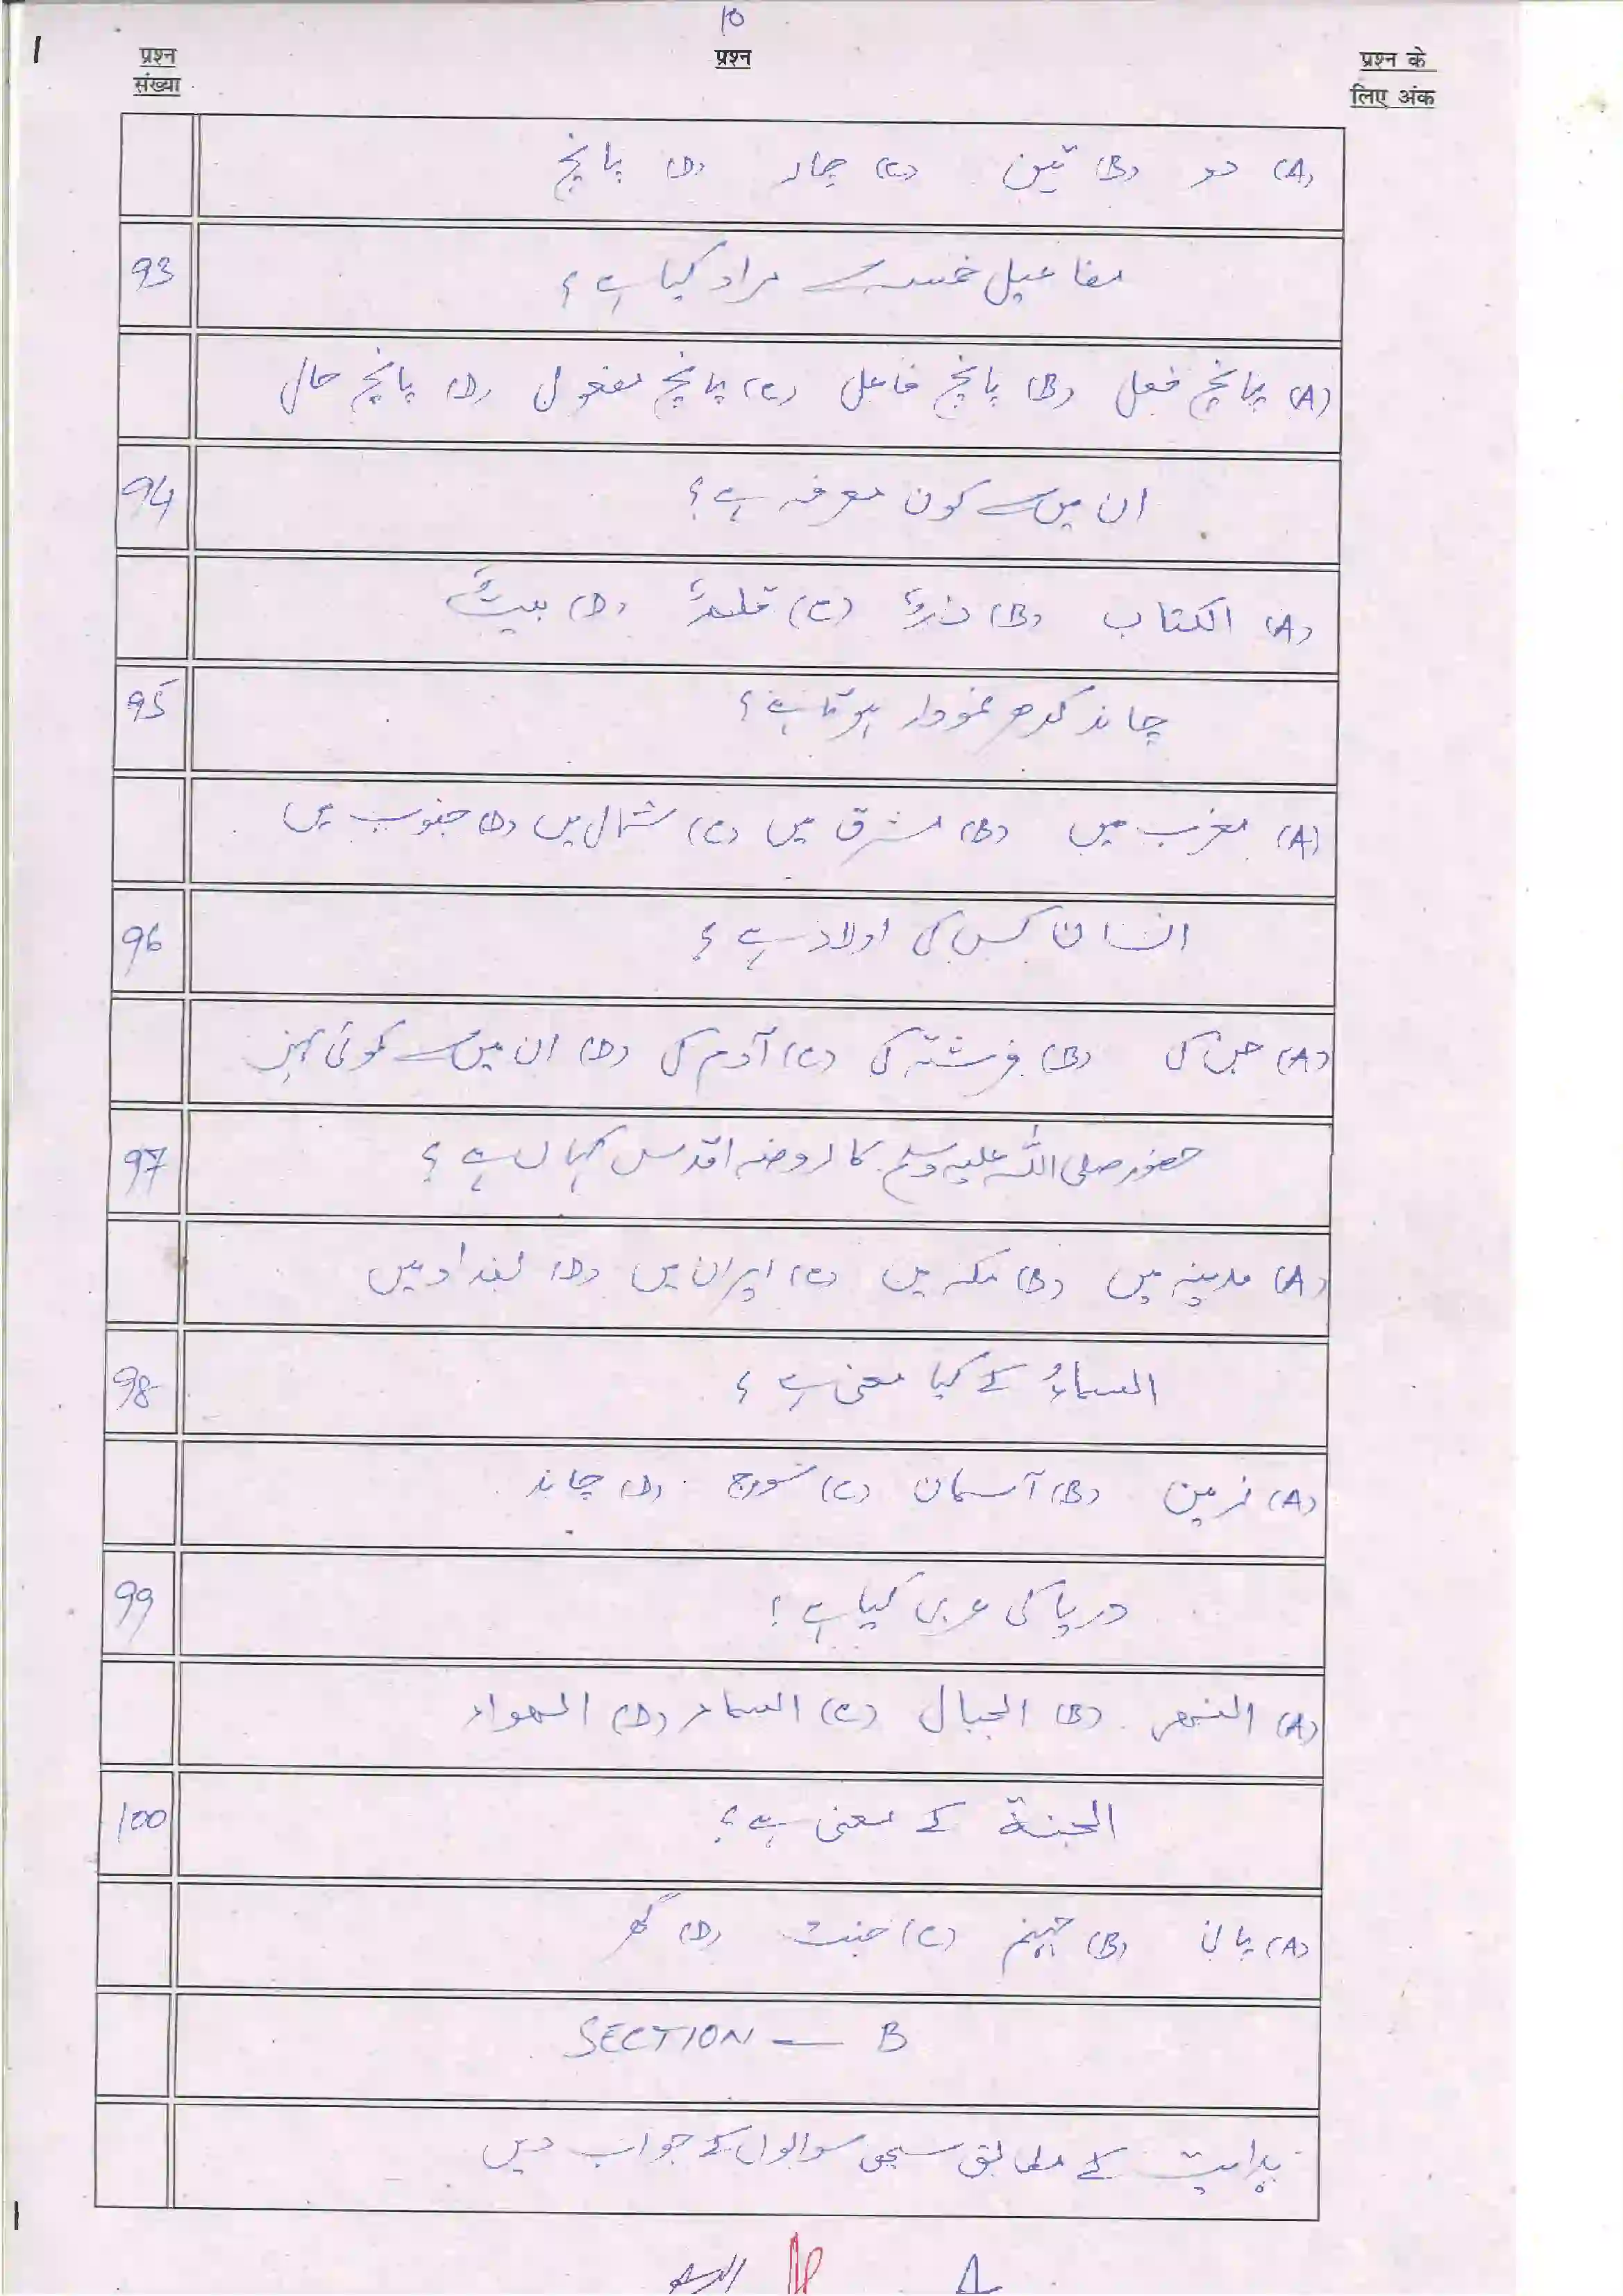 10
प्रश्न संख्या
प्रश्न
प्रश्न के लिए अंक
(A) دو (B) تین (C) چار (D) پانچ
93 مفاعیل خمسہ سے مراد کیا ہے؟
(A) پانچ فعل (B) پانچ فاعل (C) پانچ مفعول (D) پانچ حال
94 ان میں سے کون معرفہ ہے؟
(A) الکتاب (B) (C) قلمٌ (D) بیتٌ
95 چاند کدھر نمودار ہوتا ہے؟
(A) مغرب میں (B) مشرق میں (C) شمال میں (D) جنوب میں
96 انسان کس کی اولاد ہے؟
(A) جن کی (B) فرشتہ کی (C) آدم کی (D) ان میں سے کوئی نہیں
97 حضور صلی اللہ علیہ وسلم کا روضہ اقدس کہاں ہے؟
(A) مدینہ میں (B) مکہ میں (C) ایران میں (D) بغداد میں
98 السماءُ کے کیا معنی ہے؟
(A) زمین (B) آسمان (C) سورج (D) چاند
99 دریا کی عربی کیا ہے؟
(A) النھر (B) الجبال (C) السماء (D) الھواء
100 الجنة کے معنی ہے؟
(A) پانی (B) جہنم (C) جنت (D) گھر
SECTION — B
ہدایت کے مطابق سبھی سوالوں کے جواب دیں